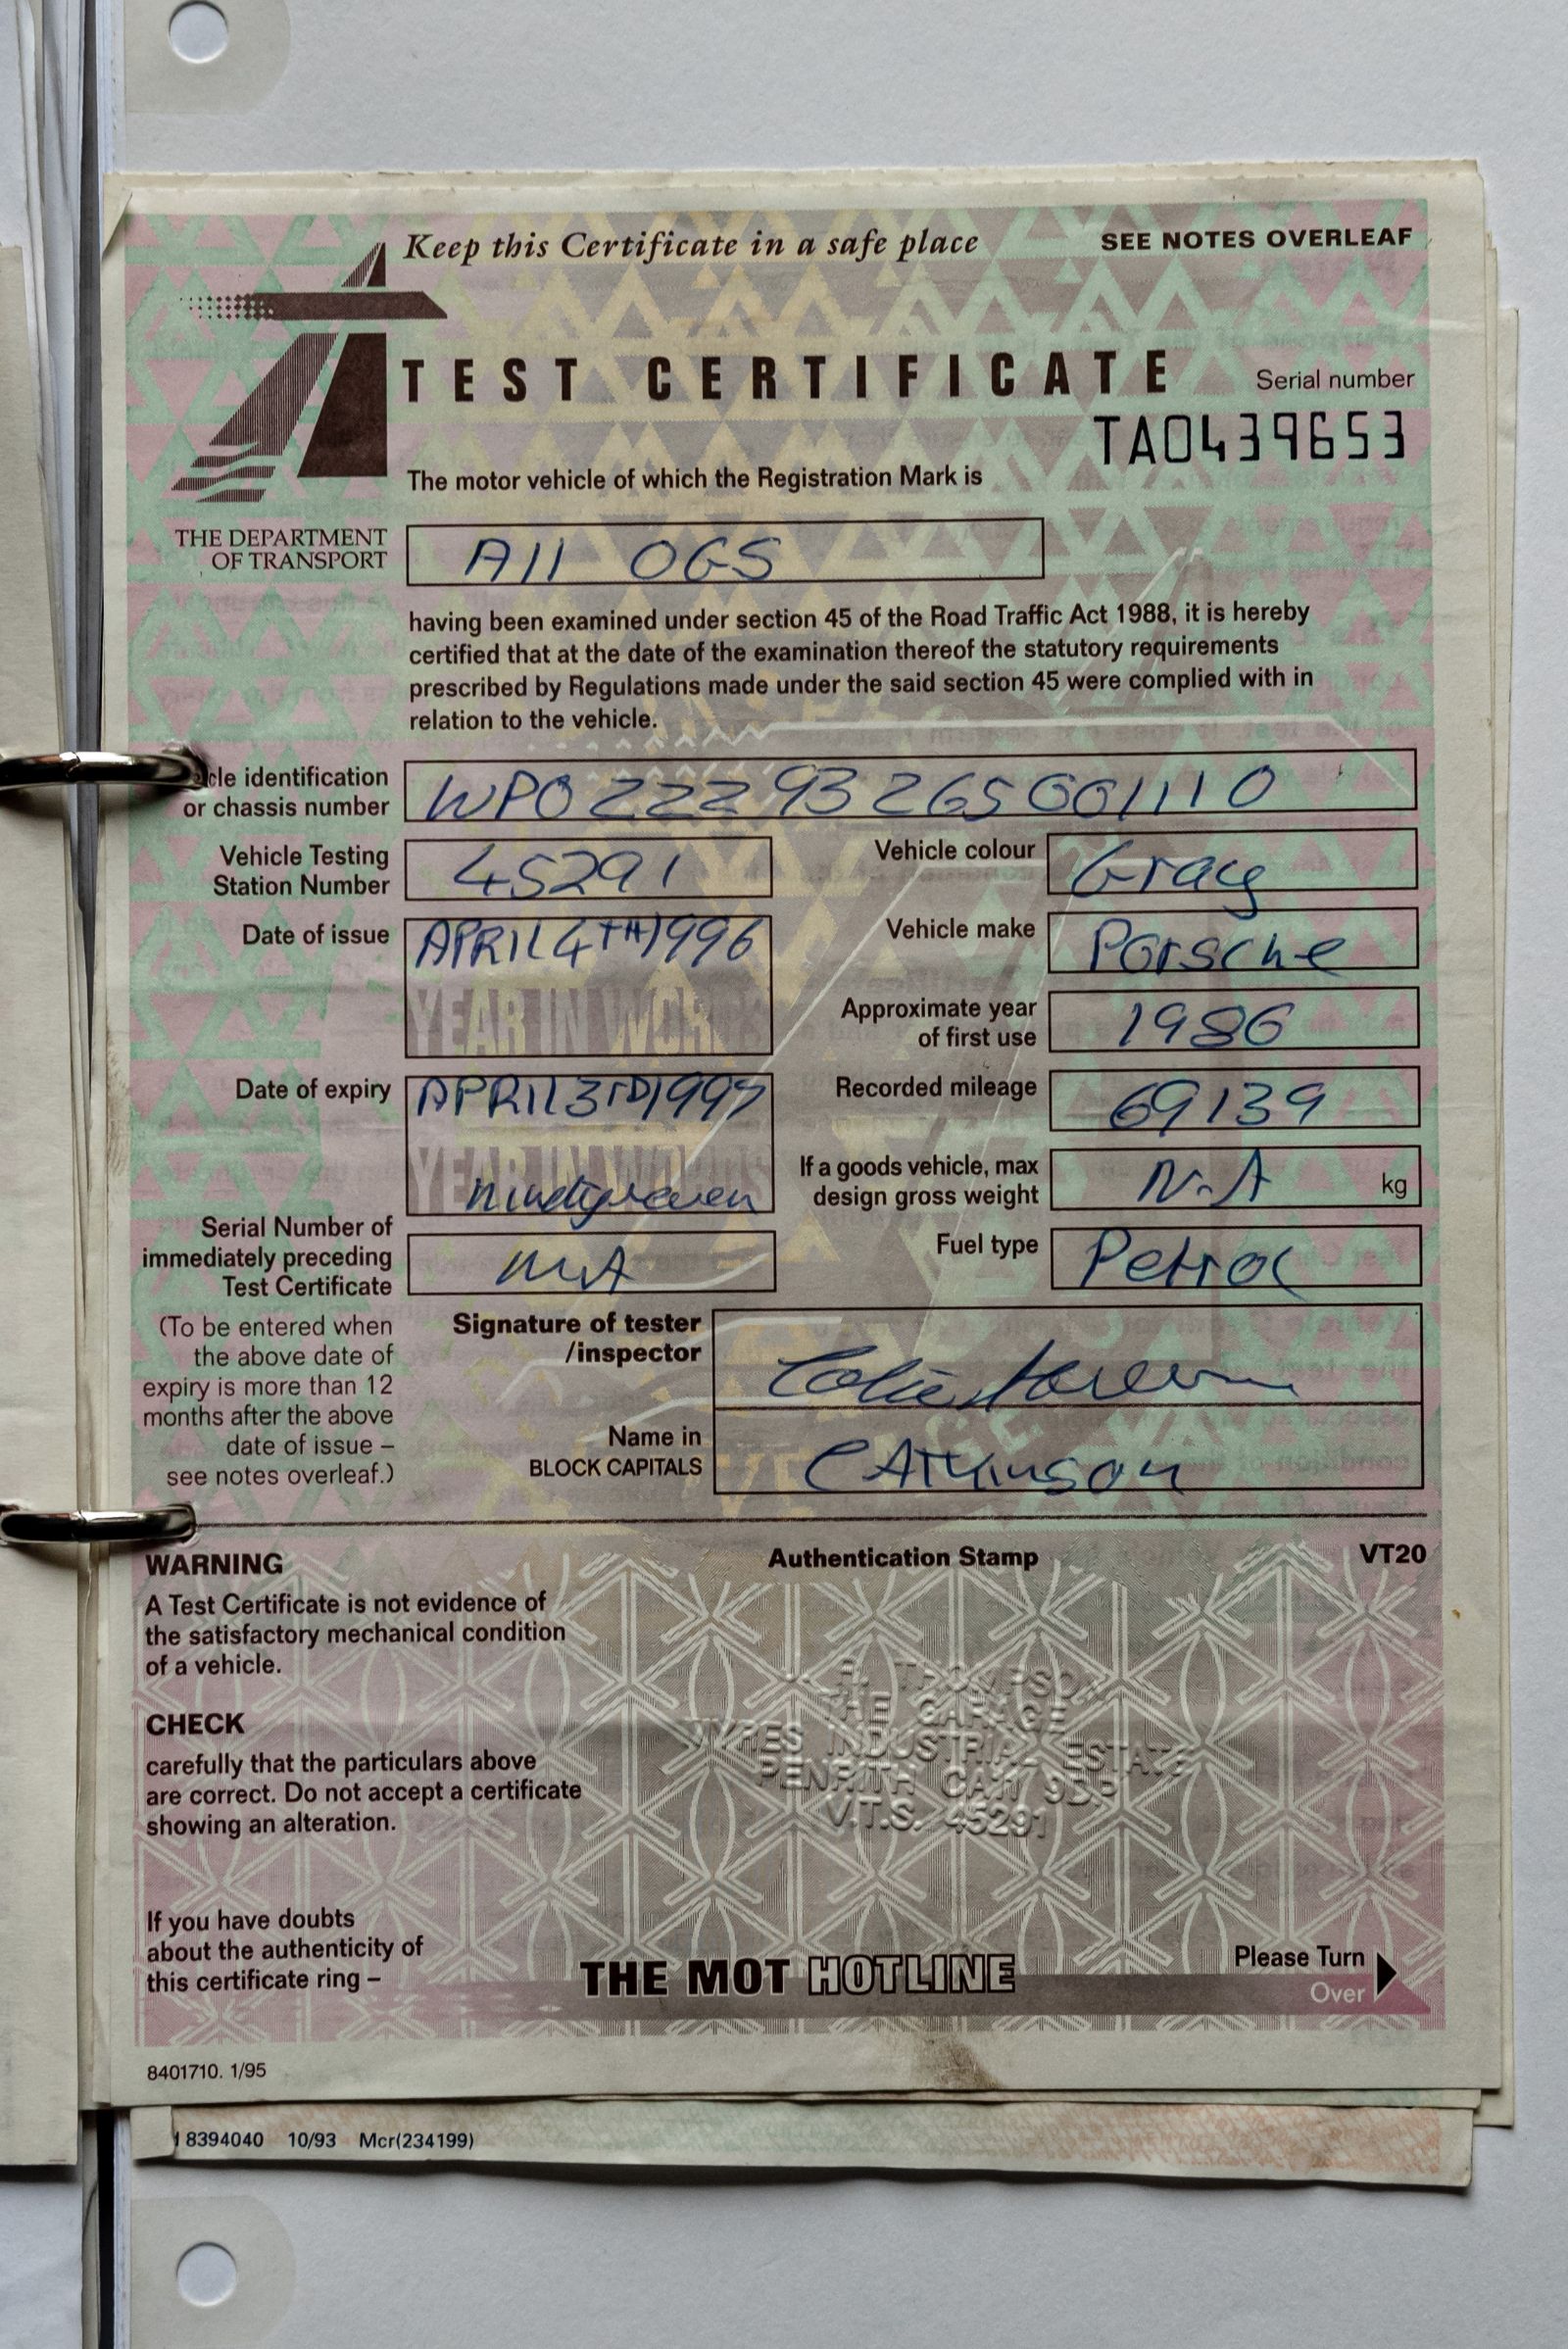 Keep this Certificate in a safe place
SEE NOTES OVERLEAF
TEST CERTIFICATE
Serial number
TA0439653
The motor vehicle of which the Registration Mark is
THE DEPARTMENT
OF TRANSPORT
A11 OGS
having been examined under section 45 of the Road Traffic Act 1988, it is hereby
certified that at the date of the examination thereof the statutory requirements
prescribed by Regulations made under the said section 45 were complied with in
relation to the vehicle.
cle identification
or chassis number
WPOZZZ93ZGS001110
Vehicle Testing
Station Number
45291
Vehicle colour
Gray
Date of issue
APRIL 4TH 1996
YEAR IN WORDS
Vehicle make
Porsche
Approximate year
of first use
1986
Date of expiry
APRIL 3RD 1997
YEAR IN WORDS
Recorded mileage
69139
If a goods vehicle, max
design gross weight
N.A kg
Serial Number of
immediately preceding
Test Certificate
N.A
Fuel type
Petrol
(To be entered when
the above date of
expiry is more than 12
months after the above
date of issue –
see notes overleaf.)
Signature of tester
/inspector
Name in
BLOCK CAPITALS
C ATKINSON
WARNING
Authentication Stamp
VT20
A Test Certificate is not evidence of
the satisfactory mechanical condition
of a vehicle.
CHECK
carefully that the particulars above
are correct. Do not accept a certificate
showing an alteration.
A. THOMPSON
THE GARAGE
INDUSTRIAL ESTATE
PENRITH CA11 9DP
V.T.S. 45291
If you have doubts
about the authenticity of
this certificate ring –
THE MOT HOTLINE
Please Turn
Over
8401710. 1/95
8394040 10/93 Mcr(234199)